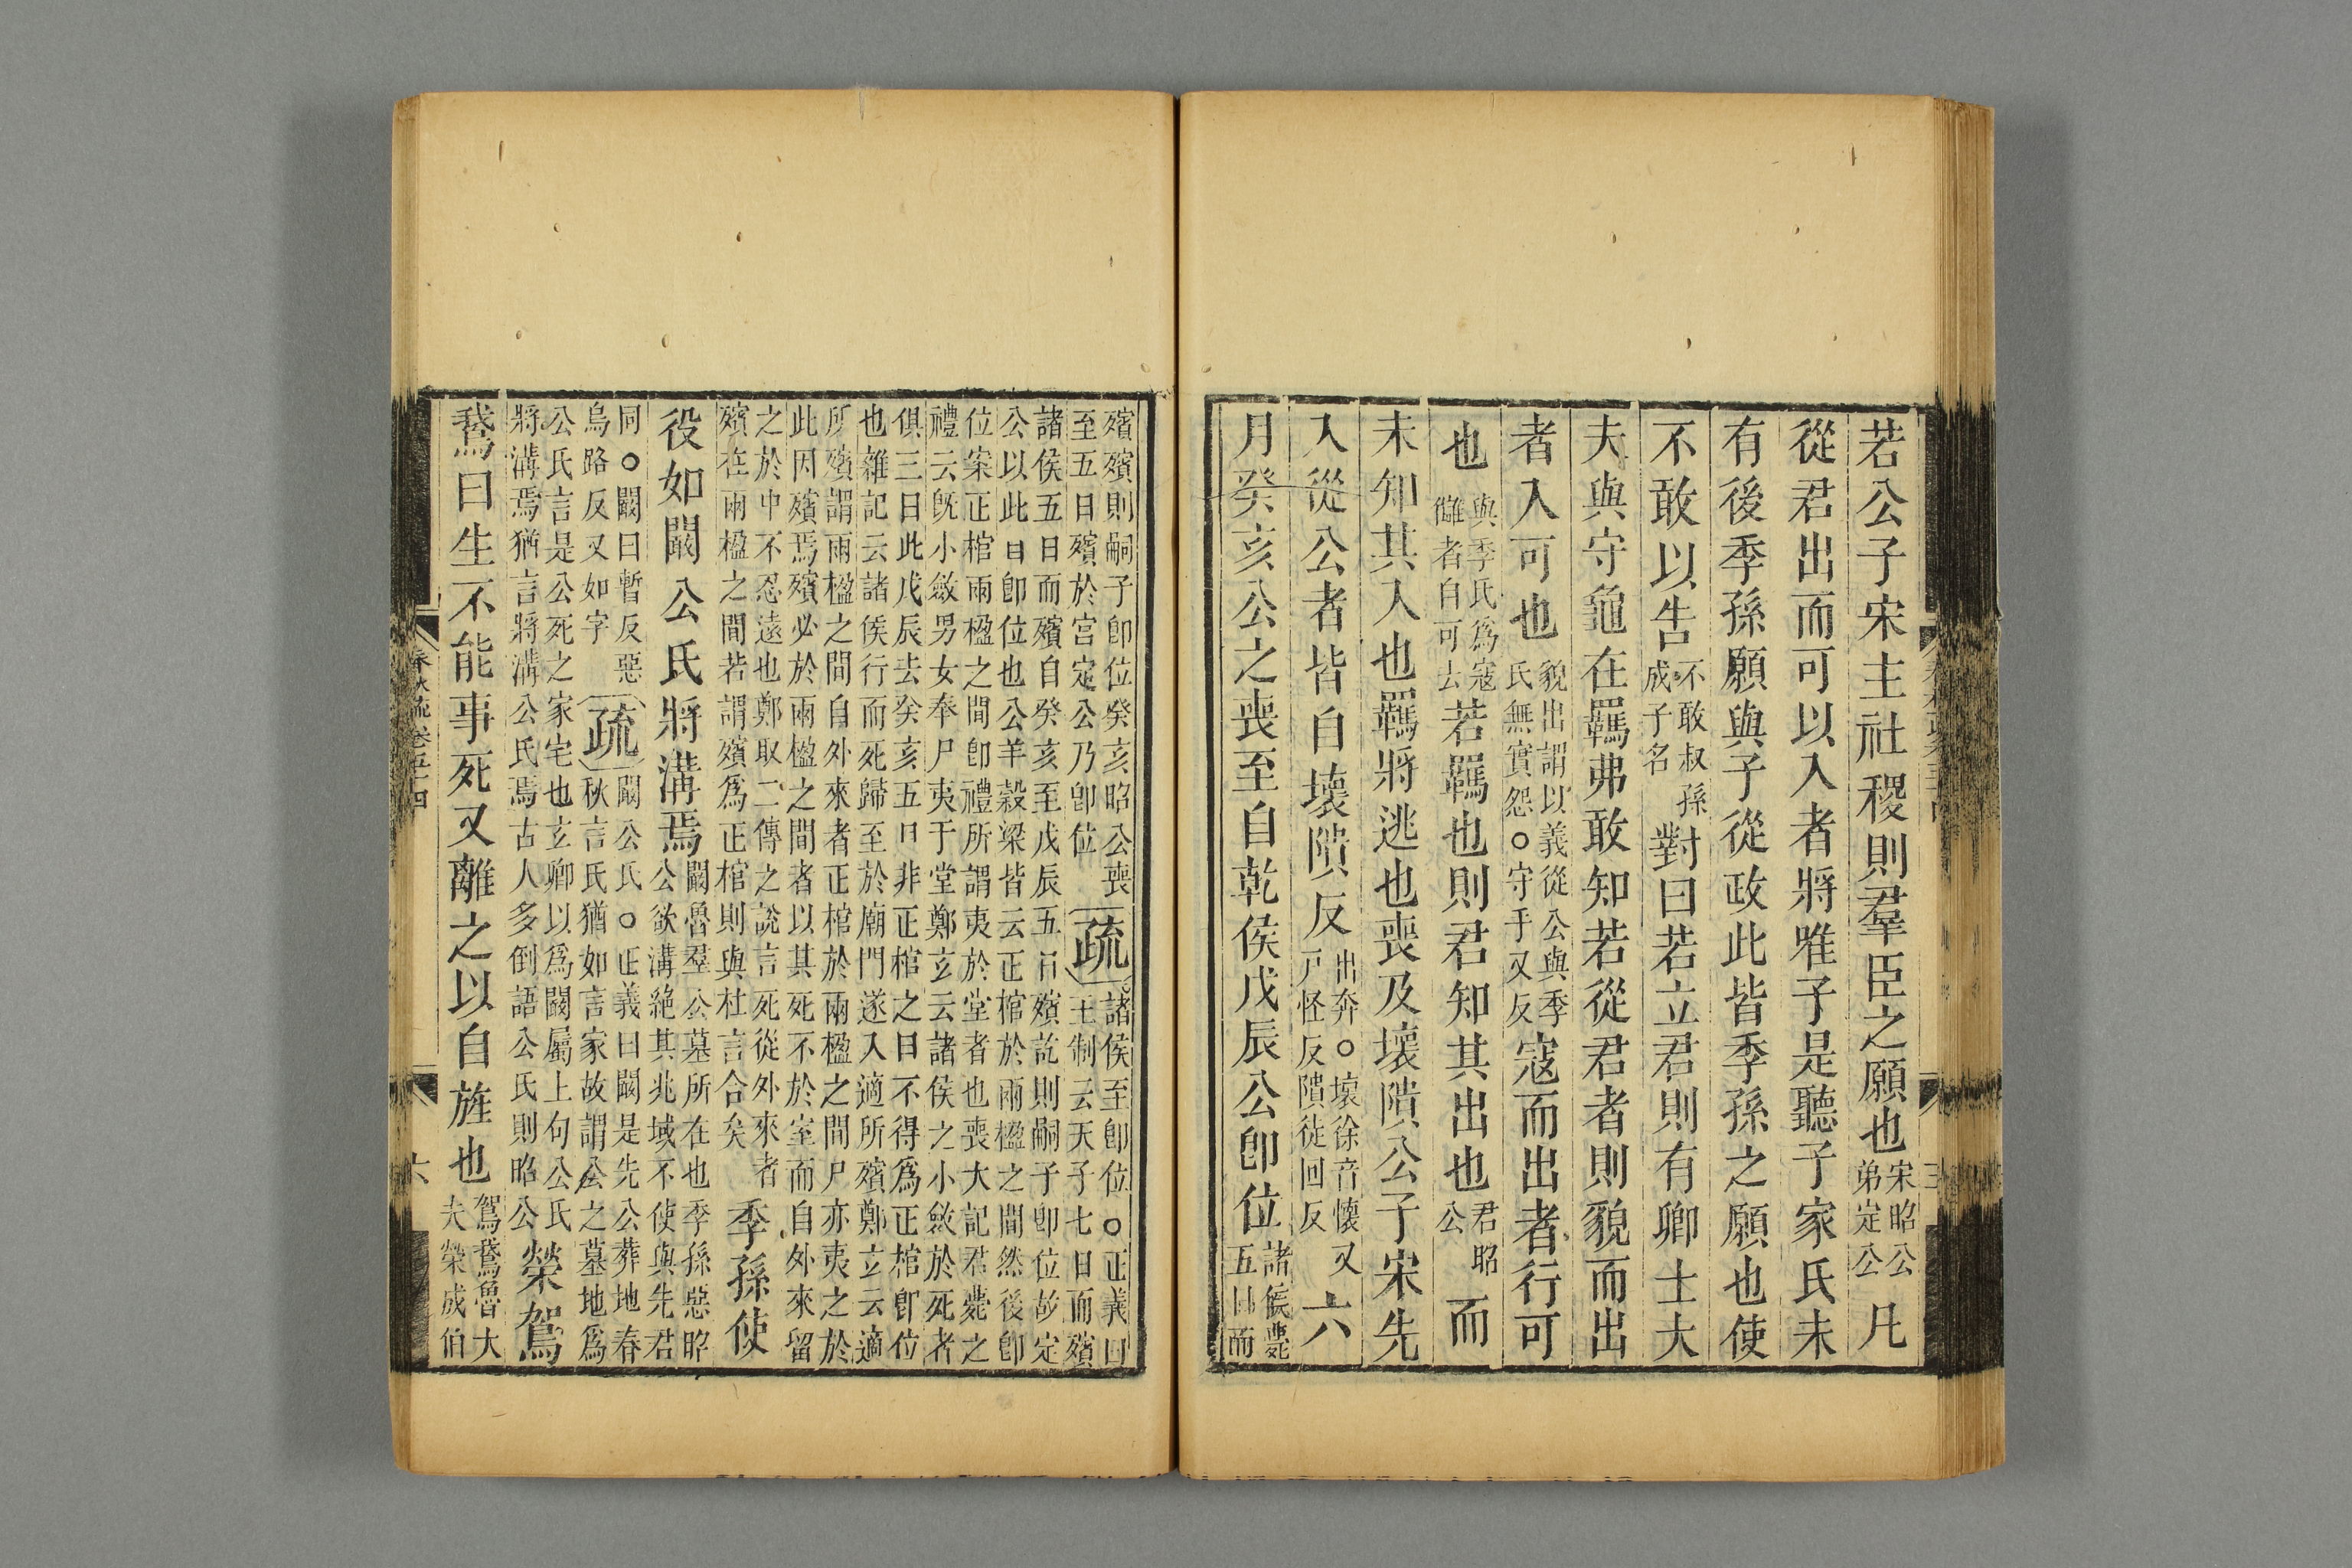 若公子宋主社稷則羣臣之願也宋昭公弟定公凡
從君出而可以入者將唯子是聽子家氏未
有後季孫願與子從政此皆季孫之願也使
不敢以告不敢叔孫成子名對曰若立君則有卿士大
夫與守龜在羈弗敢知若從君者則貌而出
者入可也貌出謂以義從公與季氏無實怨○守手又反寇而出者行可
也與季氏爲寇讎者自可去若羈也則君知其出也君昭公而
未知其入也羈將逃也喪及壞隤公子宋先
入從公者皆自壞隤反出奔○壞徐音懷又戸怪反隤徒回反六
月癸亥公之喪至自乾侯戊辰公卽位諸侯薨五日而
殯殯則嗣子卽位癸亥昭公喪
至五日殯於宮定公乃卽位疏諸侯至卽位○正義曰
王制云天子七日而殯
諸侯五日而殯自癸亥至戊辰五日殯訖則嗣子卽位故定
公以此日卽位也公羊穀梁皆云正棺於兩楹之間然後卽
位案正棺兩楹之間卽禮所謂夷於堂者也喪大記君薨之
禮云旣小斂男女奉尸夷于堂鄭玄云諸侯之小斂於死者
俱三日此戊辰去癸亥五日非正棺之日不得爲正棺卽位
也雜記云諸侯行而死歸至於廟門遂入適所殯鄭玄云適
所殯謂兩楹之間自外來者正棺於兩楹之間尸亦夷之於
此因殯焉殯必於兩楹之間者以其死不於室而自外來留
之於中不忍遠也鄭取二傳之說言死從外來者
殯在兩楹之間若謂殯爲正棺則與杜言合矣季孫使
役如闞公氏將溝焉闞魯羣公墓所在也季孫惡昭公欲溝絶其兆域不使與先君
同○闞曰暫反惡烏路反又如字疏闞公氏○正義曰闞是先公葬地春秋言氏猶如言家故謂公之墓地爲
公氏言是公死之家宅也玄卿以爲闞屬上句公氏
將溝焉猶言將溝公氏焉古人多倒語公氏則昭公榮駕
鵞曰生不能事死又離之以自旌也駕鵞魯大夫榮成伯
春秋疏卷五十四
六